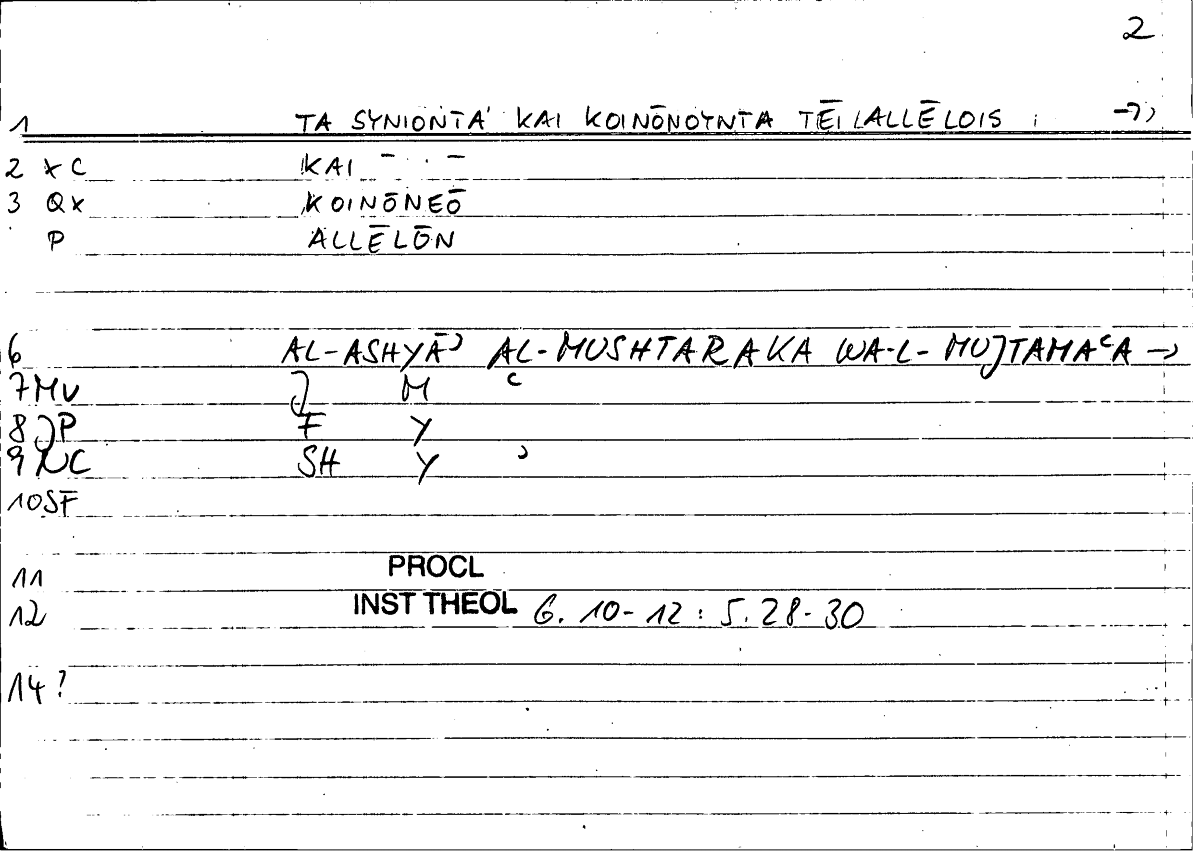 2
1 TA SYNIONTA KAI KOINŌNOYNTA TĒI ALLĒLOIS →
2 x C KAI - · · -
3 Qx KOINŌNEŌ
P ALLĒLŌN
6 AL-ASHYĀʾ AL-MUSHTARAKA WA-L-MUJTAMAʿA →
7 MV J M ʿ
8 JP F Y
9 NC SH Y ʾ
10 SF
11 PROCL
12 INST THEOL 6. 10-12 : 5. 28-30
14 ?